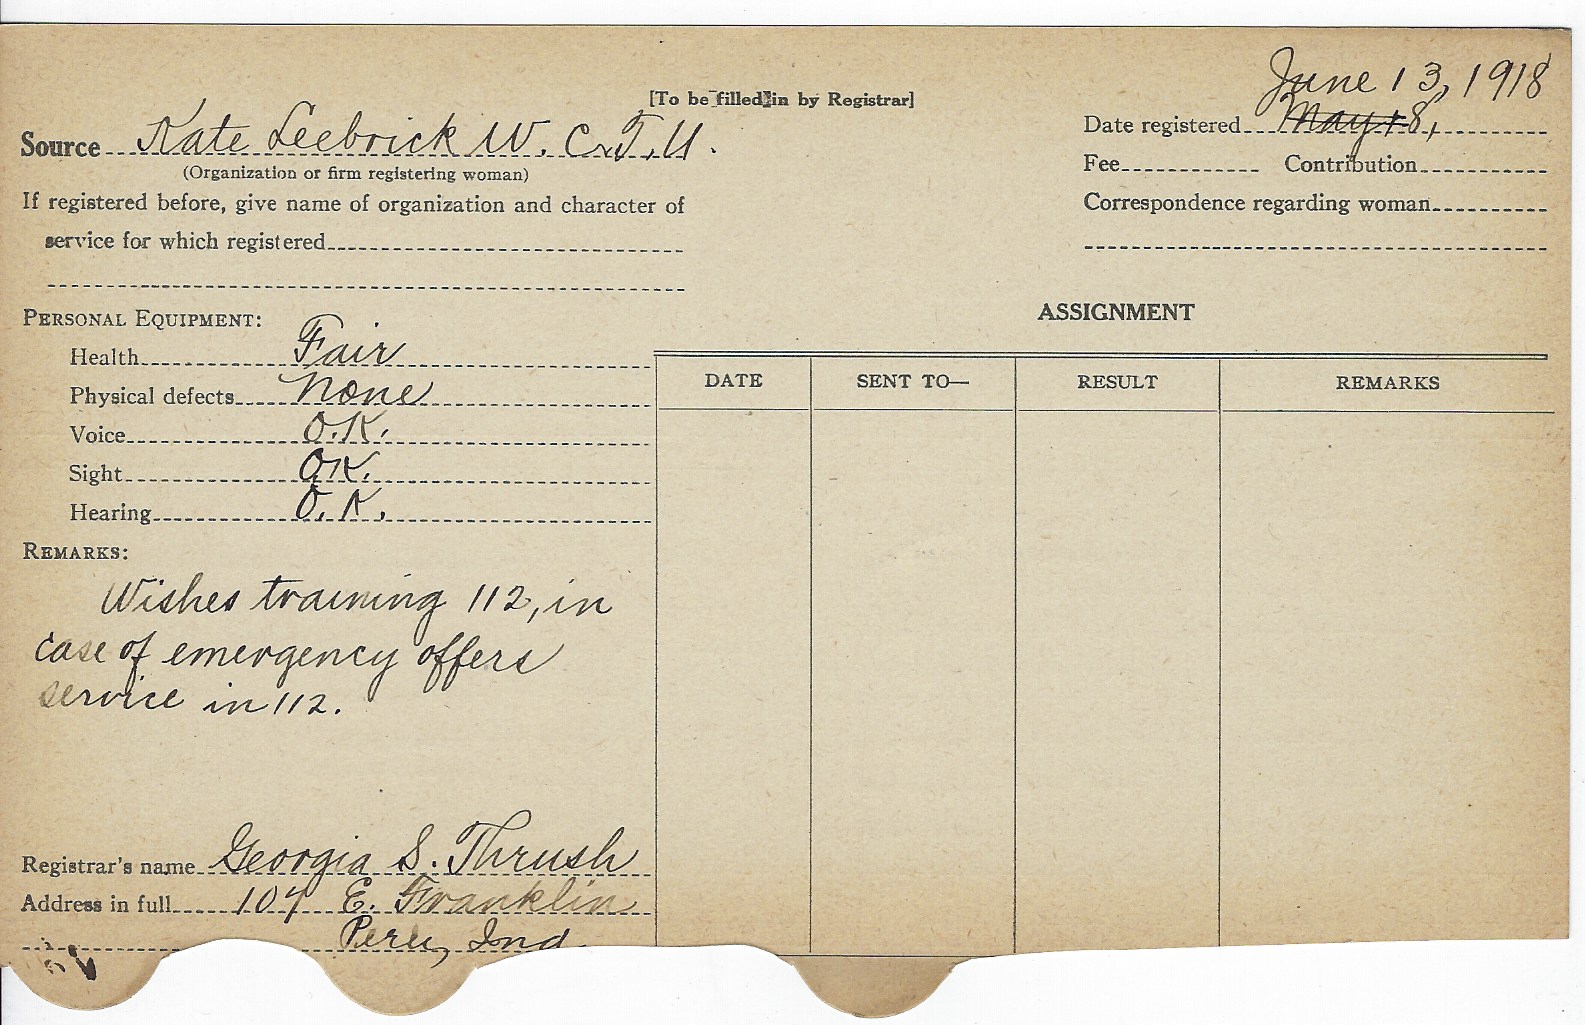 [To be filled in by Registrar]
June 13, 1918
Source Kate Leebrick W. C. T. U.
(Organization or firm registering woman)
Date registered May 18,
Fee Contribution
If registered before, give name of organization and character of
service for which registered
Correspondence regarding woman
PERSONAL EQUIPMENT:
Health Fair
Physical defects None
Voice O.K.
Sight O.K.
Hearing O.K.
REMARKS:
Wishes training 112, in
case of emergency offers
service in 112.
Registrar's name Georgia S. Thrush
Address in full 104 E. Franklin
Peru, Ind.
ASSIGNMENT
DATE SENT TO— RESULT REMARKS